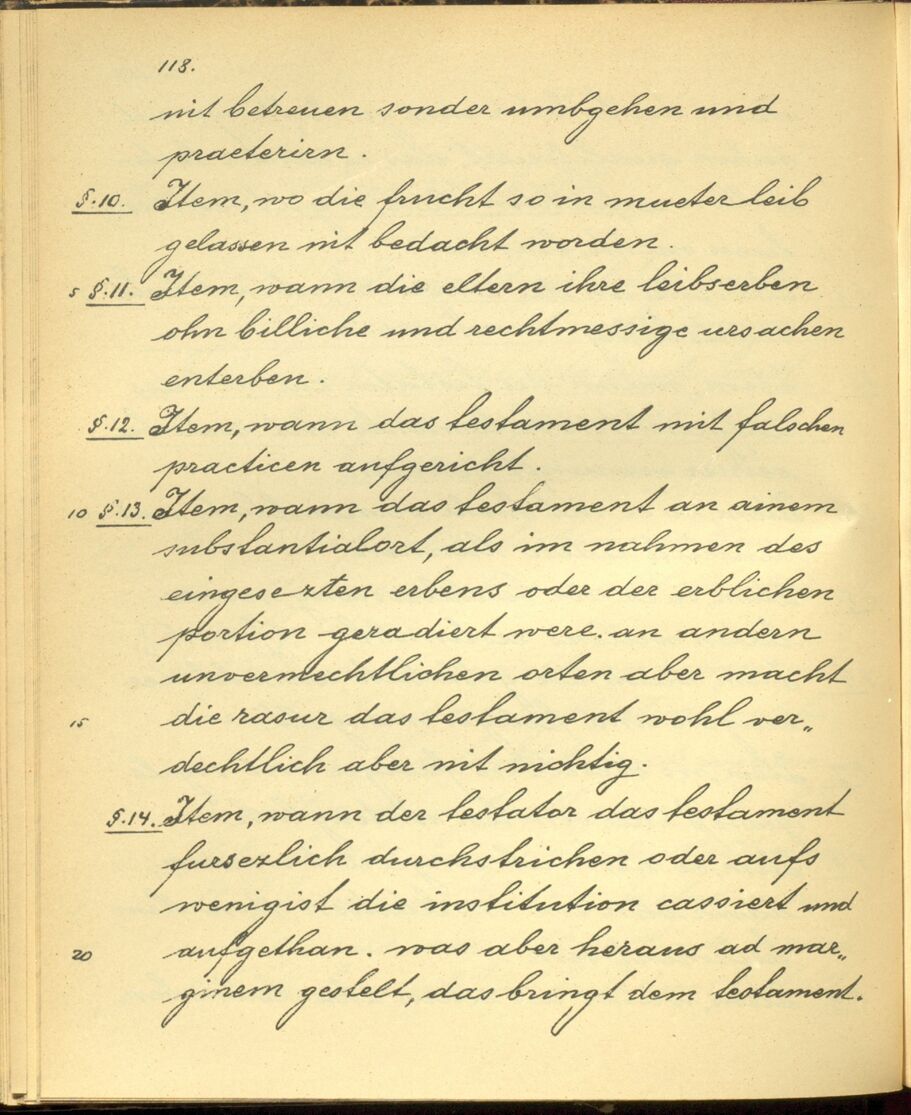 118.
nit betreuen sonder umbgehen und
praeterirn.
§.10. Item, wo die frucht so in mueter leib
gelassen nit bedacht worden.
5 §.11. Item, wann die eltern ihre leibserben
ohn billiche und rechtmessige ursachen
enterben.
§.12. Item, wann das testament mit falschen
practicen aufgericht.
10 §.13. Item, wann das testament an ainem
substantialort, als im nahmen des
eingesezten erbens oder der erblichen
portion geradiert were. an andern
unvermechtlichen orten aber macht
15 die rasur das testament wohl ver„
dechtlich aber nit nichtig.
§.14. Item, wann der testator das testament
fursezlich durchstrichen oder aufs
wenigist die institution cassiert und
20 aufgethan. was aber heraus ad mar„
ginem gestelt, das bringt dem testament.